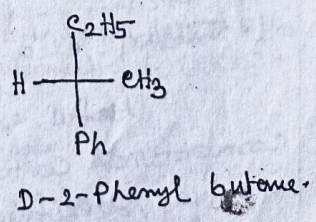 C2H5
H CH3
Ph
D-2-Phenyl butane.